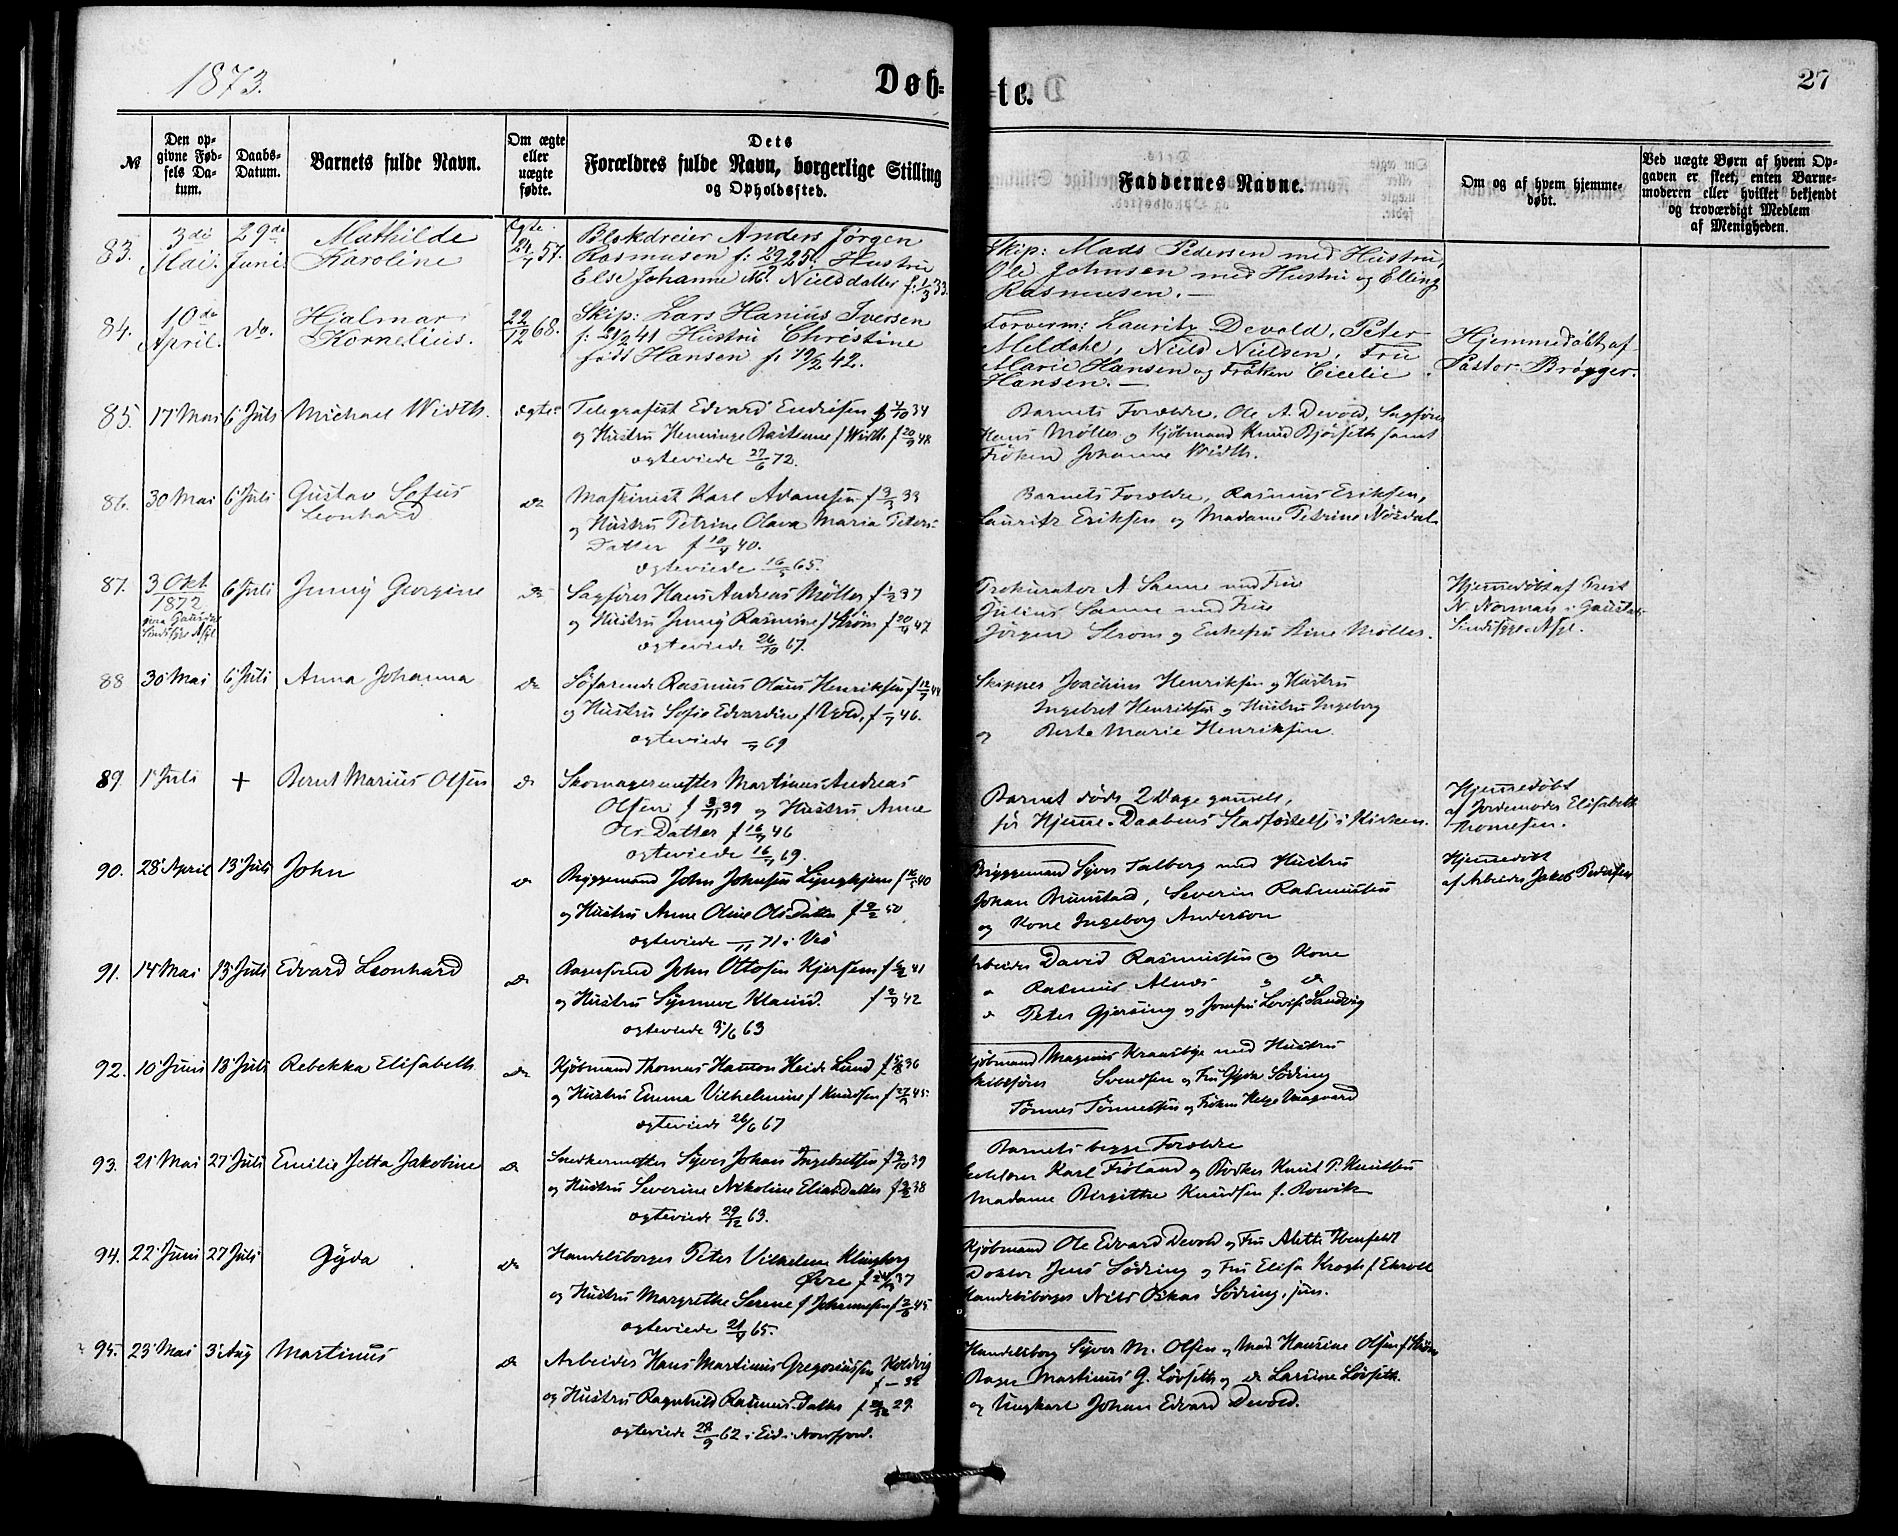 1873.
Døb-
te.
27
№
Den opgivne Fødsels Datum.
Daabs-Datum.
Barnets fulde Navn.
Om ægte eller uægte fødte.
Dets Forældres fulde Navn, borgerlige Stilling og Opholdssted.
Faddernes Navne.
Om og af hvem hjemmedøbt.
Ved uægte Børn af hvem Opgaven er skeet, enten Barnemoderen eller hvilket bekjendt og troværdigt Medlem af Menigheden.
83. 3die Mai. 29de Juni. Mathilde Karoline
Ægte. 57.
Blokdreier Anders Jørgen
Rasmusen f: 25. Hustru
Else Johanne Nielsdatter f: 1/3 33.
Skip: Mads Pedersen med Hustru,
Ole Johnsen med Hustru og Elling
Rasmusen. —
84. 10de April. do. Hjalmar Kornelius.
22/12 68.
Skip: Lars Hanius Iversen
f: 41 Hustru Christine
født Hansen f: 42.
Forverm: Lauritz Devold, Peter
Meldahl, Niels Nielsen, Frue
Marie Hansen og Frøken Cicelie
Hansen. —
Hjemmedøbt af
Pastor Brøgger.
85. 17' Mai 6' Juli Michael Width. ægte
Telegrafist Edvard Endresen f 4/10 34
og Hustru Henninge f Width f 20/9 48
ægteviede 27/6 72.
Barnets Forældre, Ole A. Devold, Sagfører
Hans Møller og Kjøbmand Knud Bjørseth samt
Frøken Johanne Width.
86. 30 Mai 6' Juli Gustav Sofus Leonhard do
Maskinist Karl Adamsen f 33
og Hustru Petrine Olava Maria Peters-
Datter f 40.
ægteviede 65.
Barnets Forældre, Rasmus Eriksen,
Lauritz Eriksen og Madame Petrine Nørdal
87. 3 Okt 1872 6' Juli Jenny Georgine do
Sagfører Hans Andreas Møller f 37
og Hustru Jenny Rasmine f Strøm f 47
ægteviede 26/10 67.
Prokurator A Sanne med Frue
Julius Sanne med Frue
Jørgen Strøm og Enkefru Stine Møller.
Hjemmedøbt af Prest
N. Norman i Gausdal
88 30 Mai 6' Juli Anna Johanna do
Søfarende Rasmus Olaus Henriksen f 44
og Hustru Sofie Edvardine f Vold, f 46.
ægteviede 69
Skipper Joachim Henriksen og Hustru
Ingebret Henriksen og Hustru Ingeborg
og Berte Marie Henriksen.
89. 1' Juli + Bernt Marius Olsen do
Skomagermester Martinus Andreas
Olsen f 39 og Hustru Anne
Ols Datter f 46
ægteviede 69.
Barnet døde 2 Dage gammelt,
før Hjemme-Daabens Stadfæstelse i Kirken.
Hjemmedøbt
af Jordemoder Elisabeth
Thomesen.
90. 28' April 13' Juli John do
Bryggemand John Johnsen f 40
og Hustru Anne Oline Olsdatter f 50
ægteviede 71 i Veø
Bryggemand Syver Talberg med Hustru
Johan Bunstad, Severin Rasmussen
og Kone Ingeborg Anderson
Hjemmedøbt
af Arbeider Jakob Pedersen
91. 14' Mai 13' Juli Edvard Leonhard do
John Ottosen Kjersem f 41
og Hustru Synneve f 42
ægteviede 63
Arbeider David Rasmussen og Kone
Rasmus Alnes
Peter Gjersing og Jomfru Lovise Sandvig
92. 10' Juni 13' Juli Rebekka Elisabeth do
Kjøbmand Thomas Heide Lund f 36
og Hustru Emma Vilhelmine f Knudsen f 45
ægteviede 26/6 67
Kjøbmand Magnus Kraasbye med Hustru
Skibsfører Svendsen og Fru Gyda Sødring
Tønnes Tønnessen og Frøken
93. 21' Mai 27' Juli Emilie Jetta Jakobine do
Snedkermester Syver Johan Ingebretsen f 39
og Hustru Severine Nikoline Eliasdatter f 38
ægteviede 29/12 63.
Barnets begge Forældre
Karl Frøland og Bødker Knut P. Knutsen
Madame Birgitthe Knudsen f. Rowik
94. 22' Juni 27' Juli Gyda do
Handelsborger Peter Vilhelm Klingberg
Øvre f 37
og Hustru Margrethe Serene f Johannesen f 45
ægteviede 65.
Kjøbmand Ole Edvard Devold og Fru Alette Ronfeldt
Doktor Jens Sødring og Fru Elisa Krogh f Ehrott
Handelsborger Nils Oskar Sødring, jun.
95. 23' Mai 3' Aug Martinus do
Arbeider Hans Martinus Gregoriussen Koldvig
f — 32
og Hustru Ragnhild Rasmus-Datter f 29.
ægteviede 62 i Eid i Nordfjord.
Handelsborg Syver M. Olsen og Mad. Hansine Olsen f Strøm
Bager Martinus G. Løvseth og do Larsine Løvseth
og Ungkarl Johan Edvard Devold.